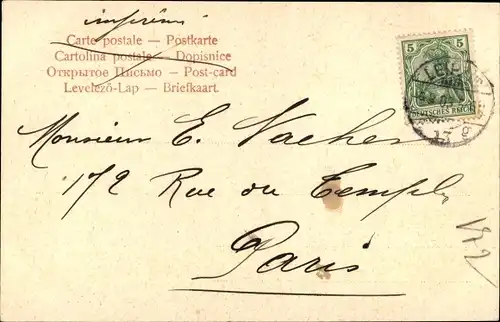 imprimé
Carte postale — Postkarte
Cartolina postale — Dopisnice
Открытое Письмо — Post-card
Levelező-Lap — Briefkaart.
5 5
DEUTSCHES REICH
Monsieur E. Vacher
172 Rue du Temple
Paris